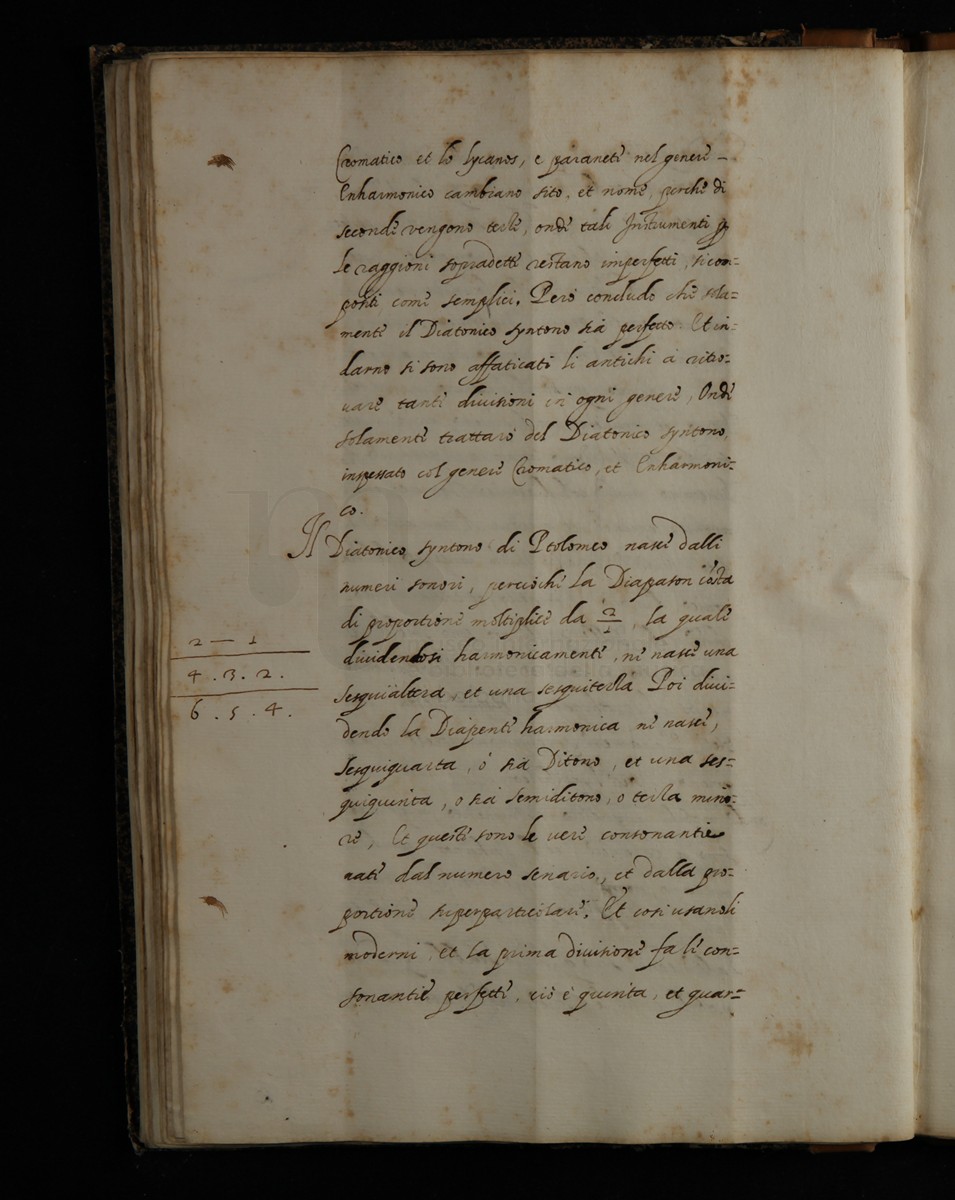 Cromatico et lo lycanos, e paranete nel genere –
Enharmonico cambiano sito, et nome, perche di
seconde vengono terze, onde tali Instrumenti p
le raggioni sopradette restano imperfetti, si com=
posti come semplici. Però concludo che sola=
mente il Diatonico syntono sia perfetto. Et in=
darno si sono affaticati li antichi à ritro=
uare tante diuisioni in ogni genere, Onde
solamente trattarò del Diatonico syntono,
inspessato col genere Cromatico, et Enharmoni=
co.
Il Diatonico syntono di Ptolomeo nasce dalli
numeri sonori, percioche la Diapason cõsta
di proportione moltiplice da 2/1, la quale
diuidendosi harmonicamente, ne nasce una
sesquialtera, et una sesquiterza Poi diui=
dendo la Diapente harmonica ne nasce,
sesquiquarta, ò sia Ditono, et una ses=
quiquinta, o sia semiditono, o terza mino=
re, Et queste sono le uere consonantie
nate dal numero senario, et dalla pro=
portione superparticolare. Et cosi usano li
moderni, et la prima diuisione fa le con=
sonantie perfette, ciò è quinta, et quar=
2 — 1
4 . 3 . 2 .
6 . 5 . 4 .